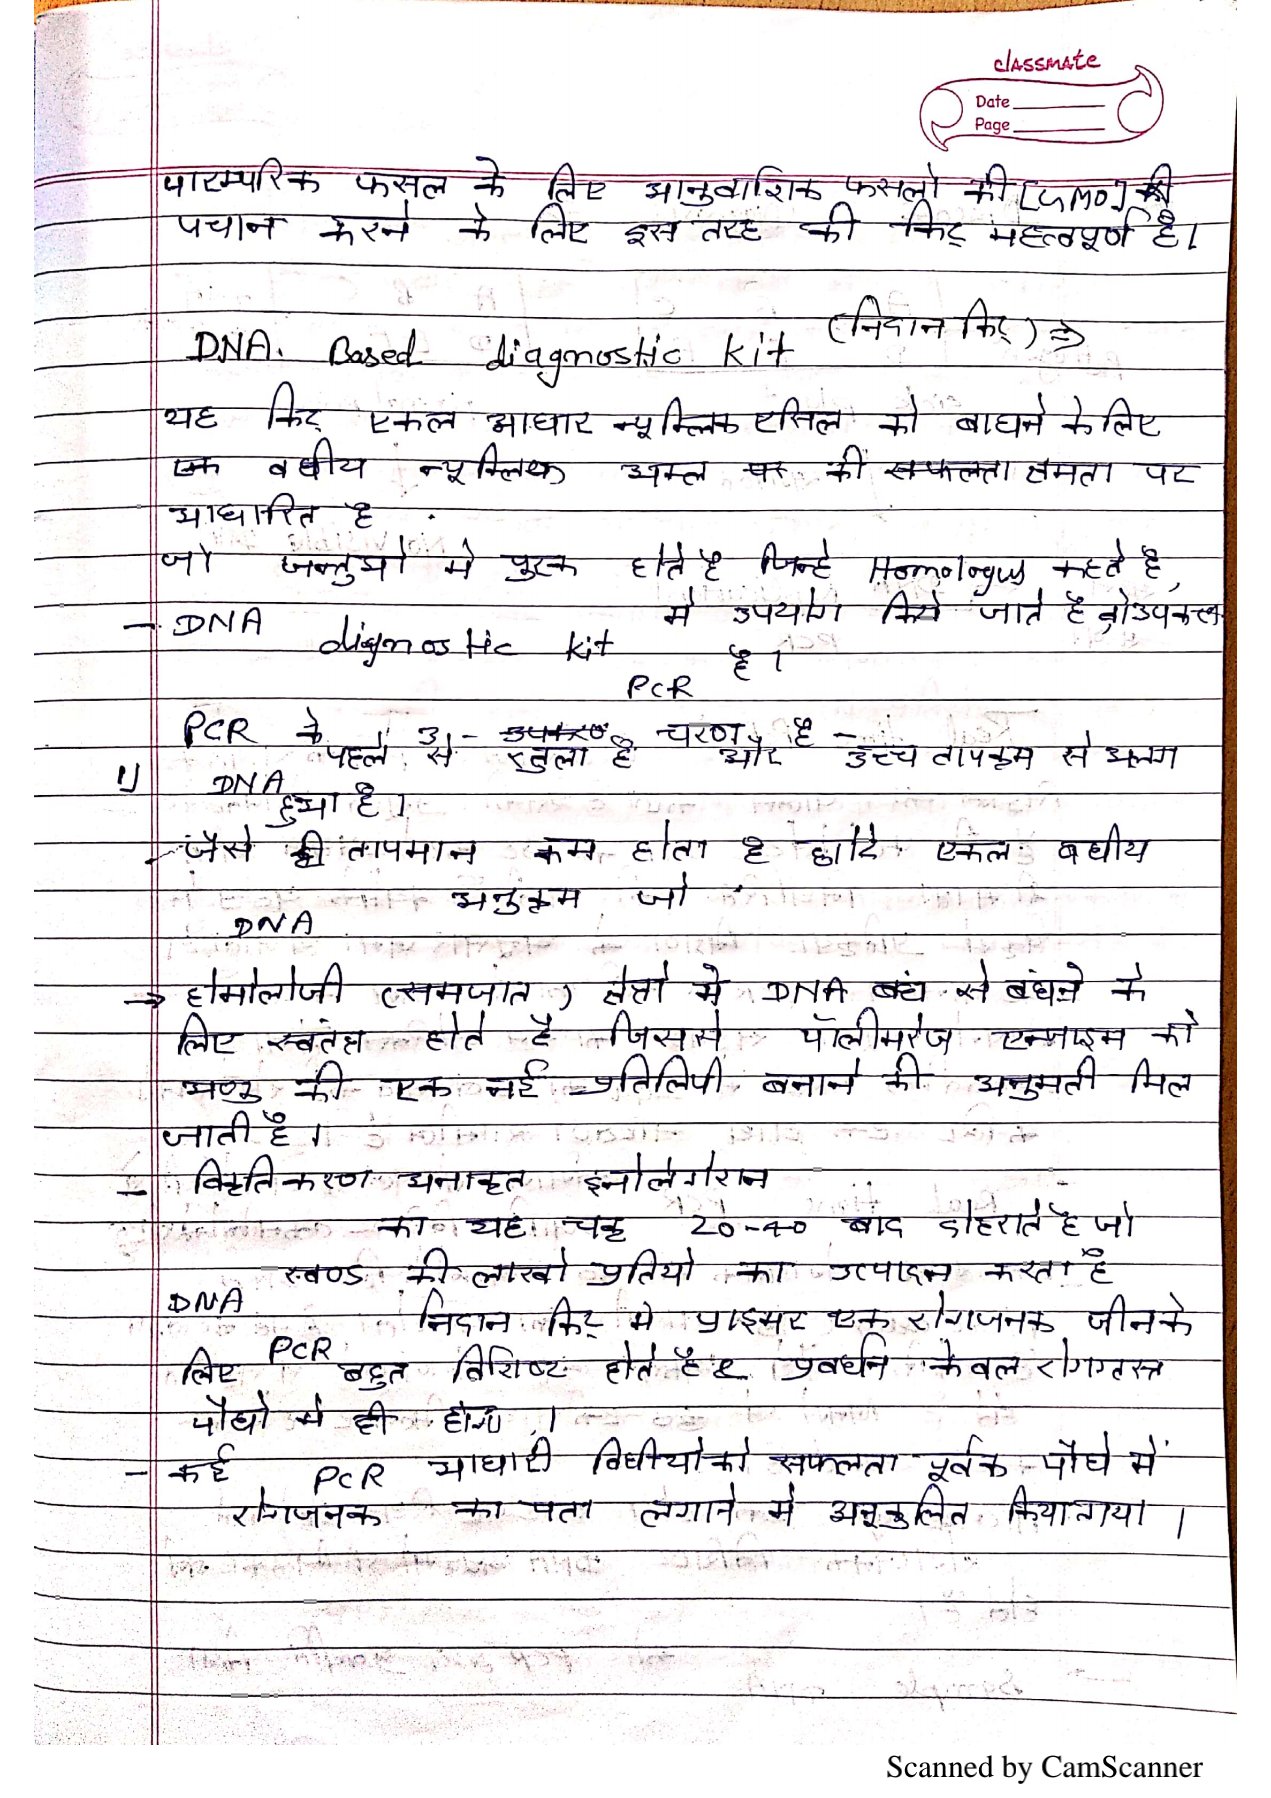 classmate
Date
Page
पारम्परिक फसल के लिए आनुवाशिक फसलो की [GMO] की
पचान करने के लिए इस तरह की किट् महत्वपूर्ण है।
(निदान किट्) ⇒
DNA. Based diagnostic kit
यह किट् एकल आधार न्यूक्लिक एसिल को बाधने के लिए
एक बधीय न्यूक्लिक अम्ल की सफलता क्षमता पर
आधारित है .
जो जन्तुओ मे पुरक होते है जिन्हे Homologus कहते है,
- DNA diagnostic kit मे उपयोग किये जाते है जो उपकल
है।
PCR
PCR के 3 - चरण है -
1) DNA पहले से खुला है और उच्च तापक्रम से अलग
हुआ है।
- जैसे ही तापमान कम होता है छोटे एकल बधीय
DNA अनुक्रम जो
→ होमोलोजी (समजात) क्षेत्रो मे DNA बंध से बंधने के
लिए स्वतंत्र होते है जिससे पॉलीमरेज एन्जाइम को
अणु की एक नई प्रतिलिपी बनाने की अनुमती मिल
जाती है।
- विकृतिकरण अनाकृत
का यह चक्र 20-40 बाद दोहराते है जो
DNA खण्ड की लाखो प्रतियो का उत्पादन करता है
PCR निदान किट् मे प्राइमर एक रोगजनक जीन के
लिए बहुत विशिष्ट होते है & प्रवर्धन केवल रोगग्रस्त
पौधो मे ही होगा।
- कई PCR आधारी विधीयो को सफलता पूर्वक पौधे में
रोगजनक का पता लगाने मे अनुकुलित किया गया।
Scanned by CamScanner